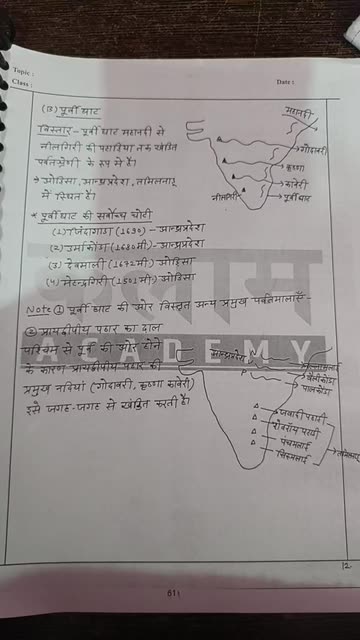 Topic :
Class :
Date :
(B) पूर्वी घाट
विस्तार - पूर्वी घाट महानदी से
नीलगिरी की पहाड़ियों तक खंडित
पर्वतश्रेणी के रूप में है।
→ ओडिसा, आन्ध्रप्रदेश, तामिलनाडू
में स्थित है।
महानदी
गोदावरी
कृष्णा
कावेरी
नीलगिरी
पूर्वीघाट
* पूर्वीघाट की सर्वोच्च चोटी
(1) जिंदागाडा (1690) - आन्ध्रप्रदेश
(2) उर्माकोंडा (1680मी) - आन्ध्रप्रदेश
(3) देवमाली (1672मी) ओडिसा
(4) महेन्द्रगिरी (1501मी) ओडिसा
Note ① पूर्वी घाट की ओर विस्तृत अन्य प्रमुख पर्वतमालाएँ -
② प्रायद्वीपीय पठार का ढाल
पश्चिम से पूर्व की ओर होने
के कारण प्रायद्वीपीय पठार की
प्रमुख नदियाँ (गोदावरी, कृष्णा कावेरी)
इसे जगह-जगह से खंडित करती है।
आन्ध्रप्रदेश
नल्लामलाई
वेलीकोंडा
पालकोंडा
जवादी पहाड़ी
शेवरॉय पहाड़ी
पंचमलाई
सिरुमलाई
कलाम
ACADEMY
12
611